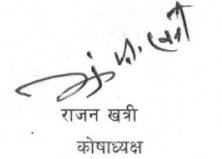 राजन खत्री
कोषाध्यक्ष